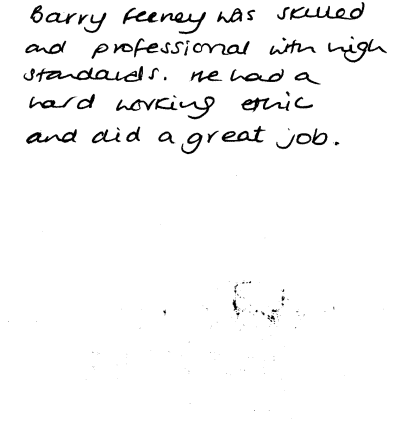 Barry Feeney was skilled
and professional with high
standards. He had a
hard working ethic
and did a great job.